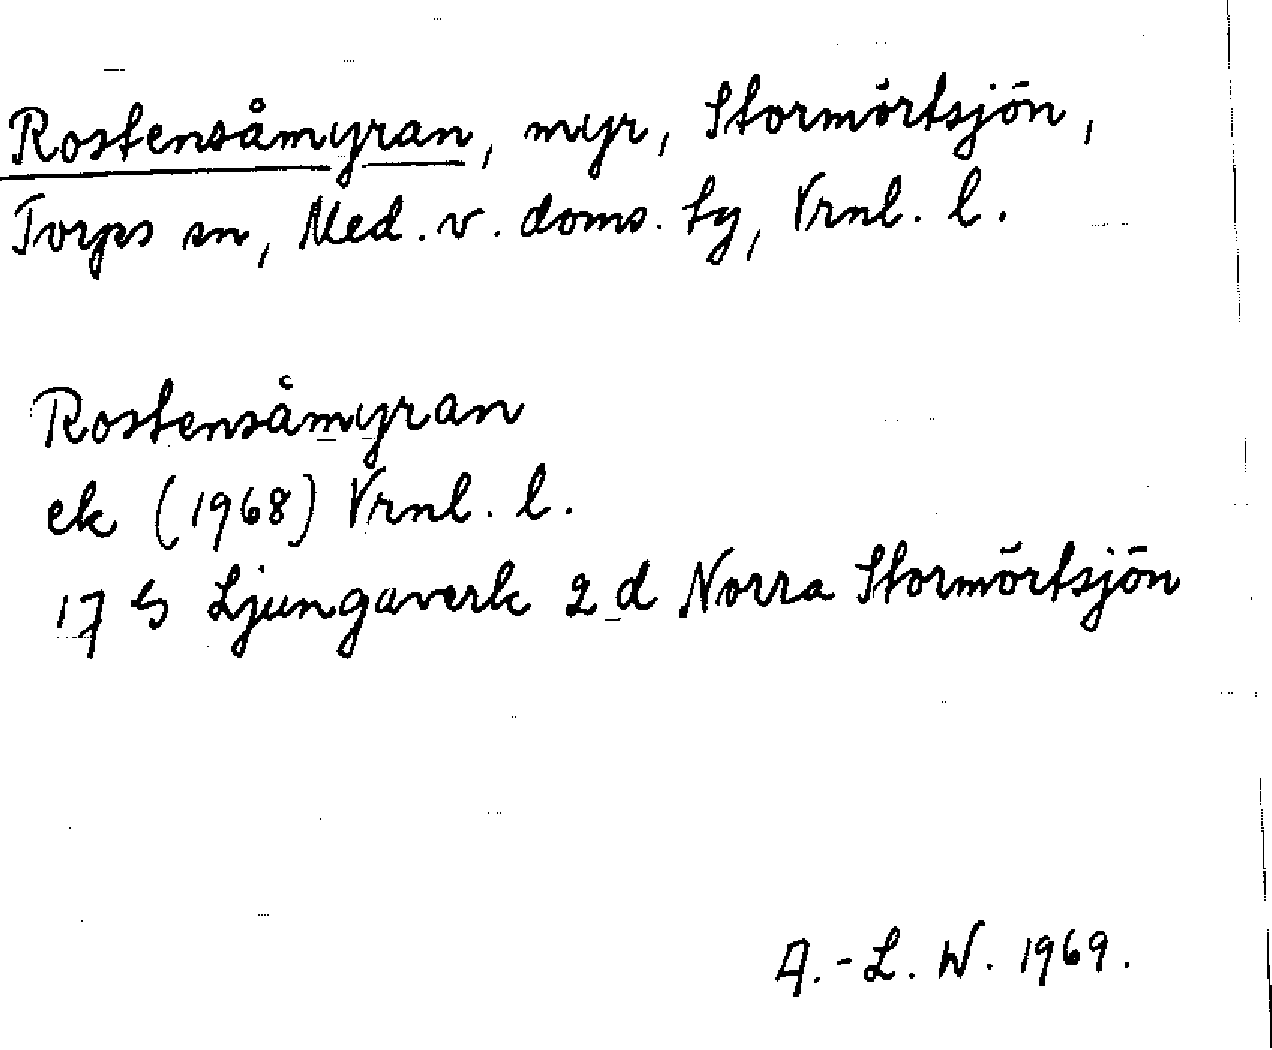 Rostensåmyran, myr, Stormörtsjön,
Torps sn, Med. v. doms. tg, Vrnl. l.
Rostensåmyran
ek (1968) Vrnl. l.
17 G Ljungaverk 2 d Norra Stormörtsjön
A.-L. W. 1969.